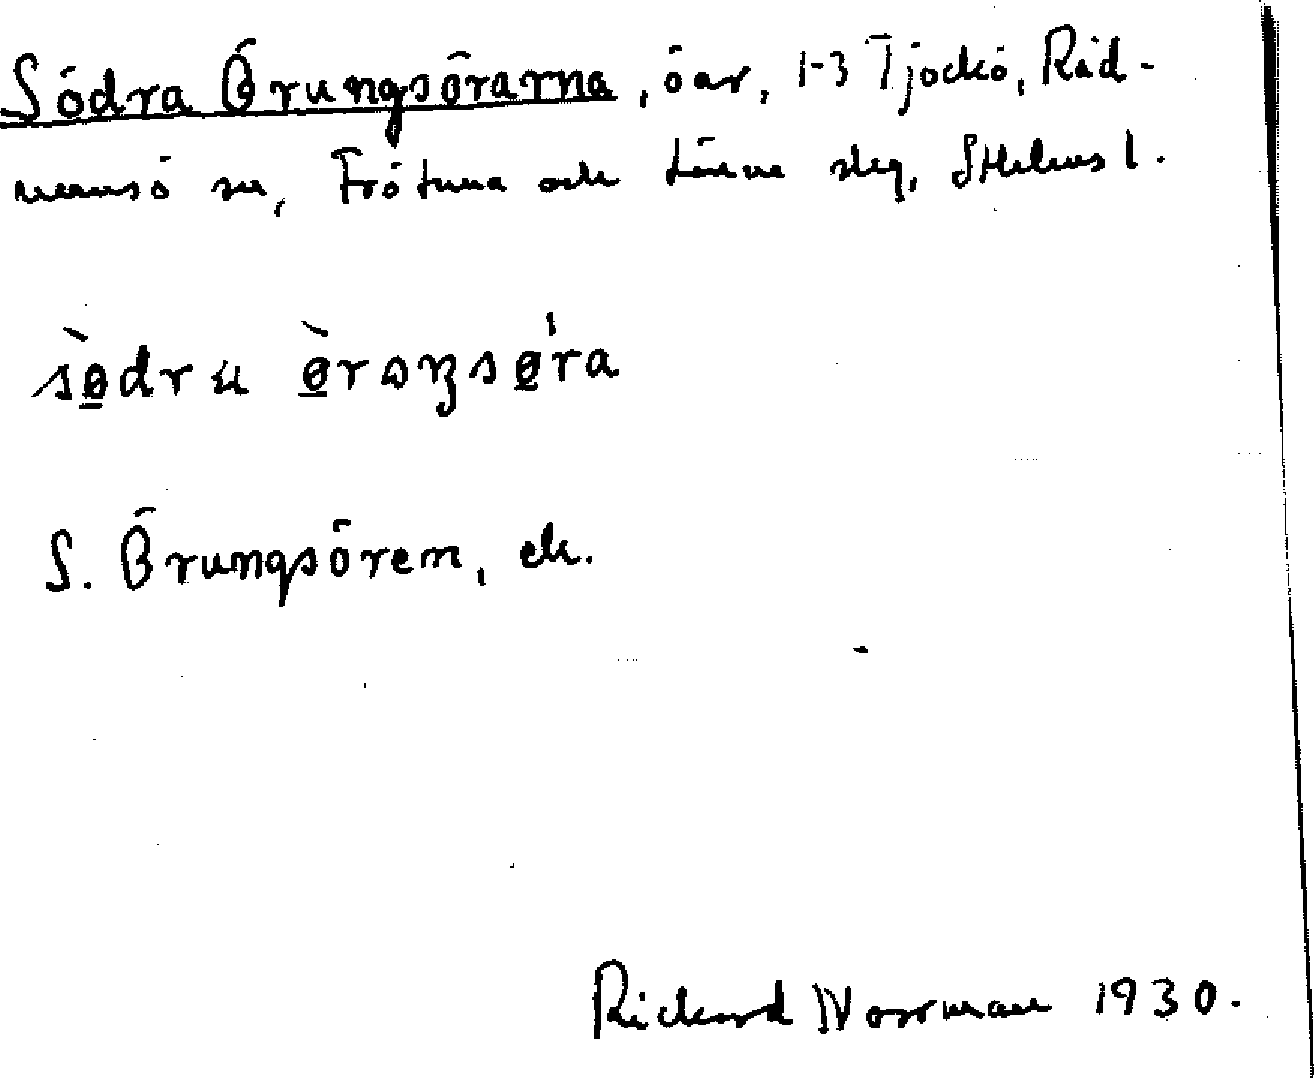 Södra Örungsörarna, öar, 1-3 Tjockö, Räd-
mansö sn, Frötuna och Länna skg, Sthlms l.
sø̀dra ø̀rɷŋsø'ra
S. Örungsören, ek.
Rickard Norrman 1930.